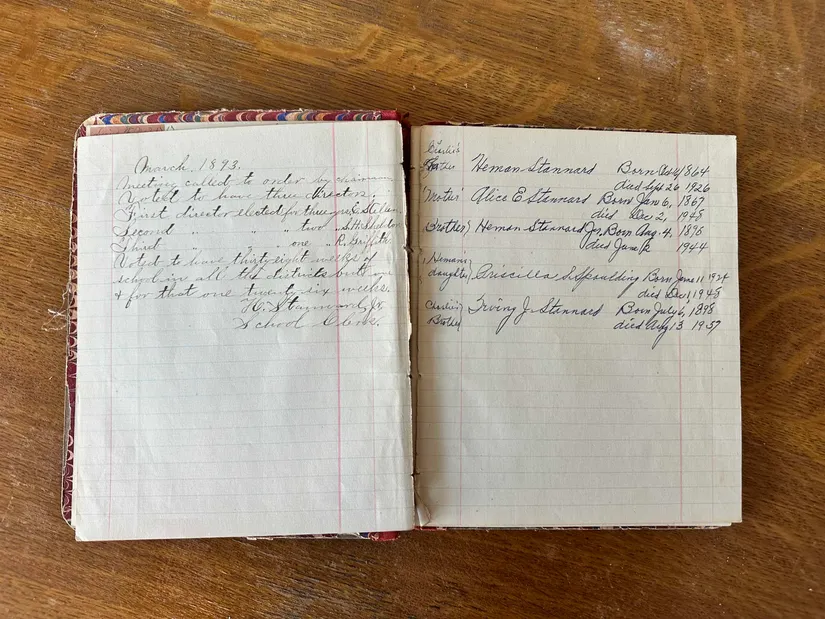 March 1893.
Meeting called to order by chairman
Voted to have three directors.
First director elected for three yrs E. Stetson
Second " " " two " S.H. Shelston
Third " " one " R. Griffith
Voted to have thirty eight weeks of
school in all the districts but one
& for that one twenty six weeks.
H. Stannard, Jr.
School Clerk.
Charlie's
Father Heman Stannard Born 1864
died Sept 26 1926
Mother Alice E Stannard Born Jan 6, 1867
died Dec 2, 1948
Brother Heman Stannard Jr. Born Aug. 4, 1896
died June 12 1944
Heman's
daughter Priscilla S Spaulding Born June 11 1924
died Dec 1 1948
Charlie's Irving J. Stannard Born July 6, 1898
Brother died Aug 13 1957